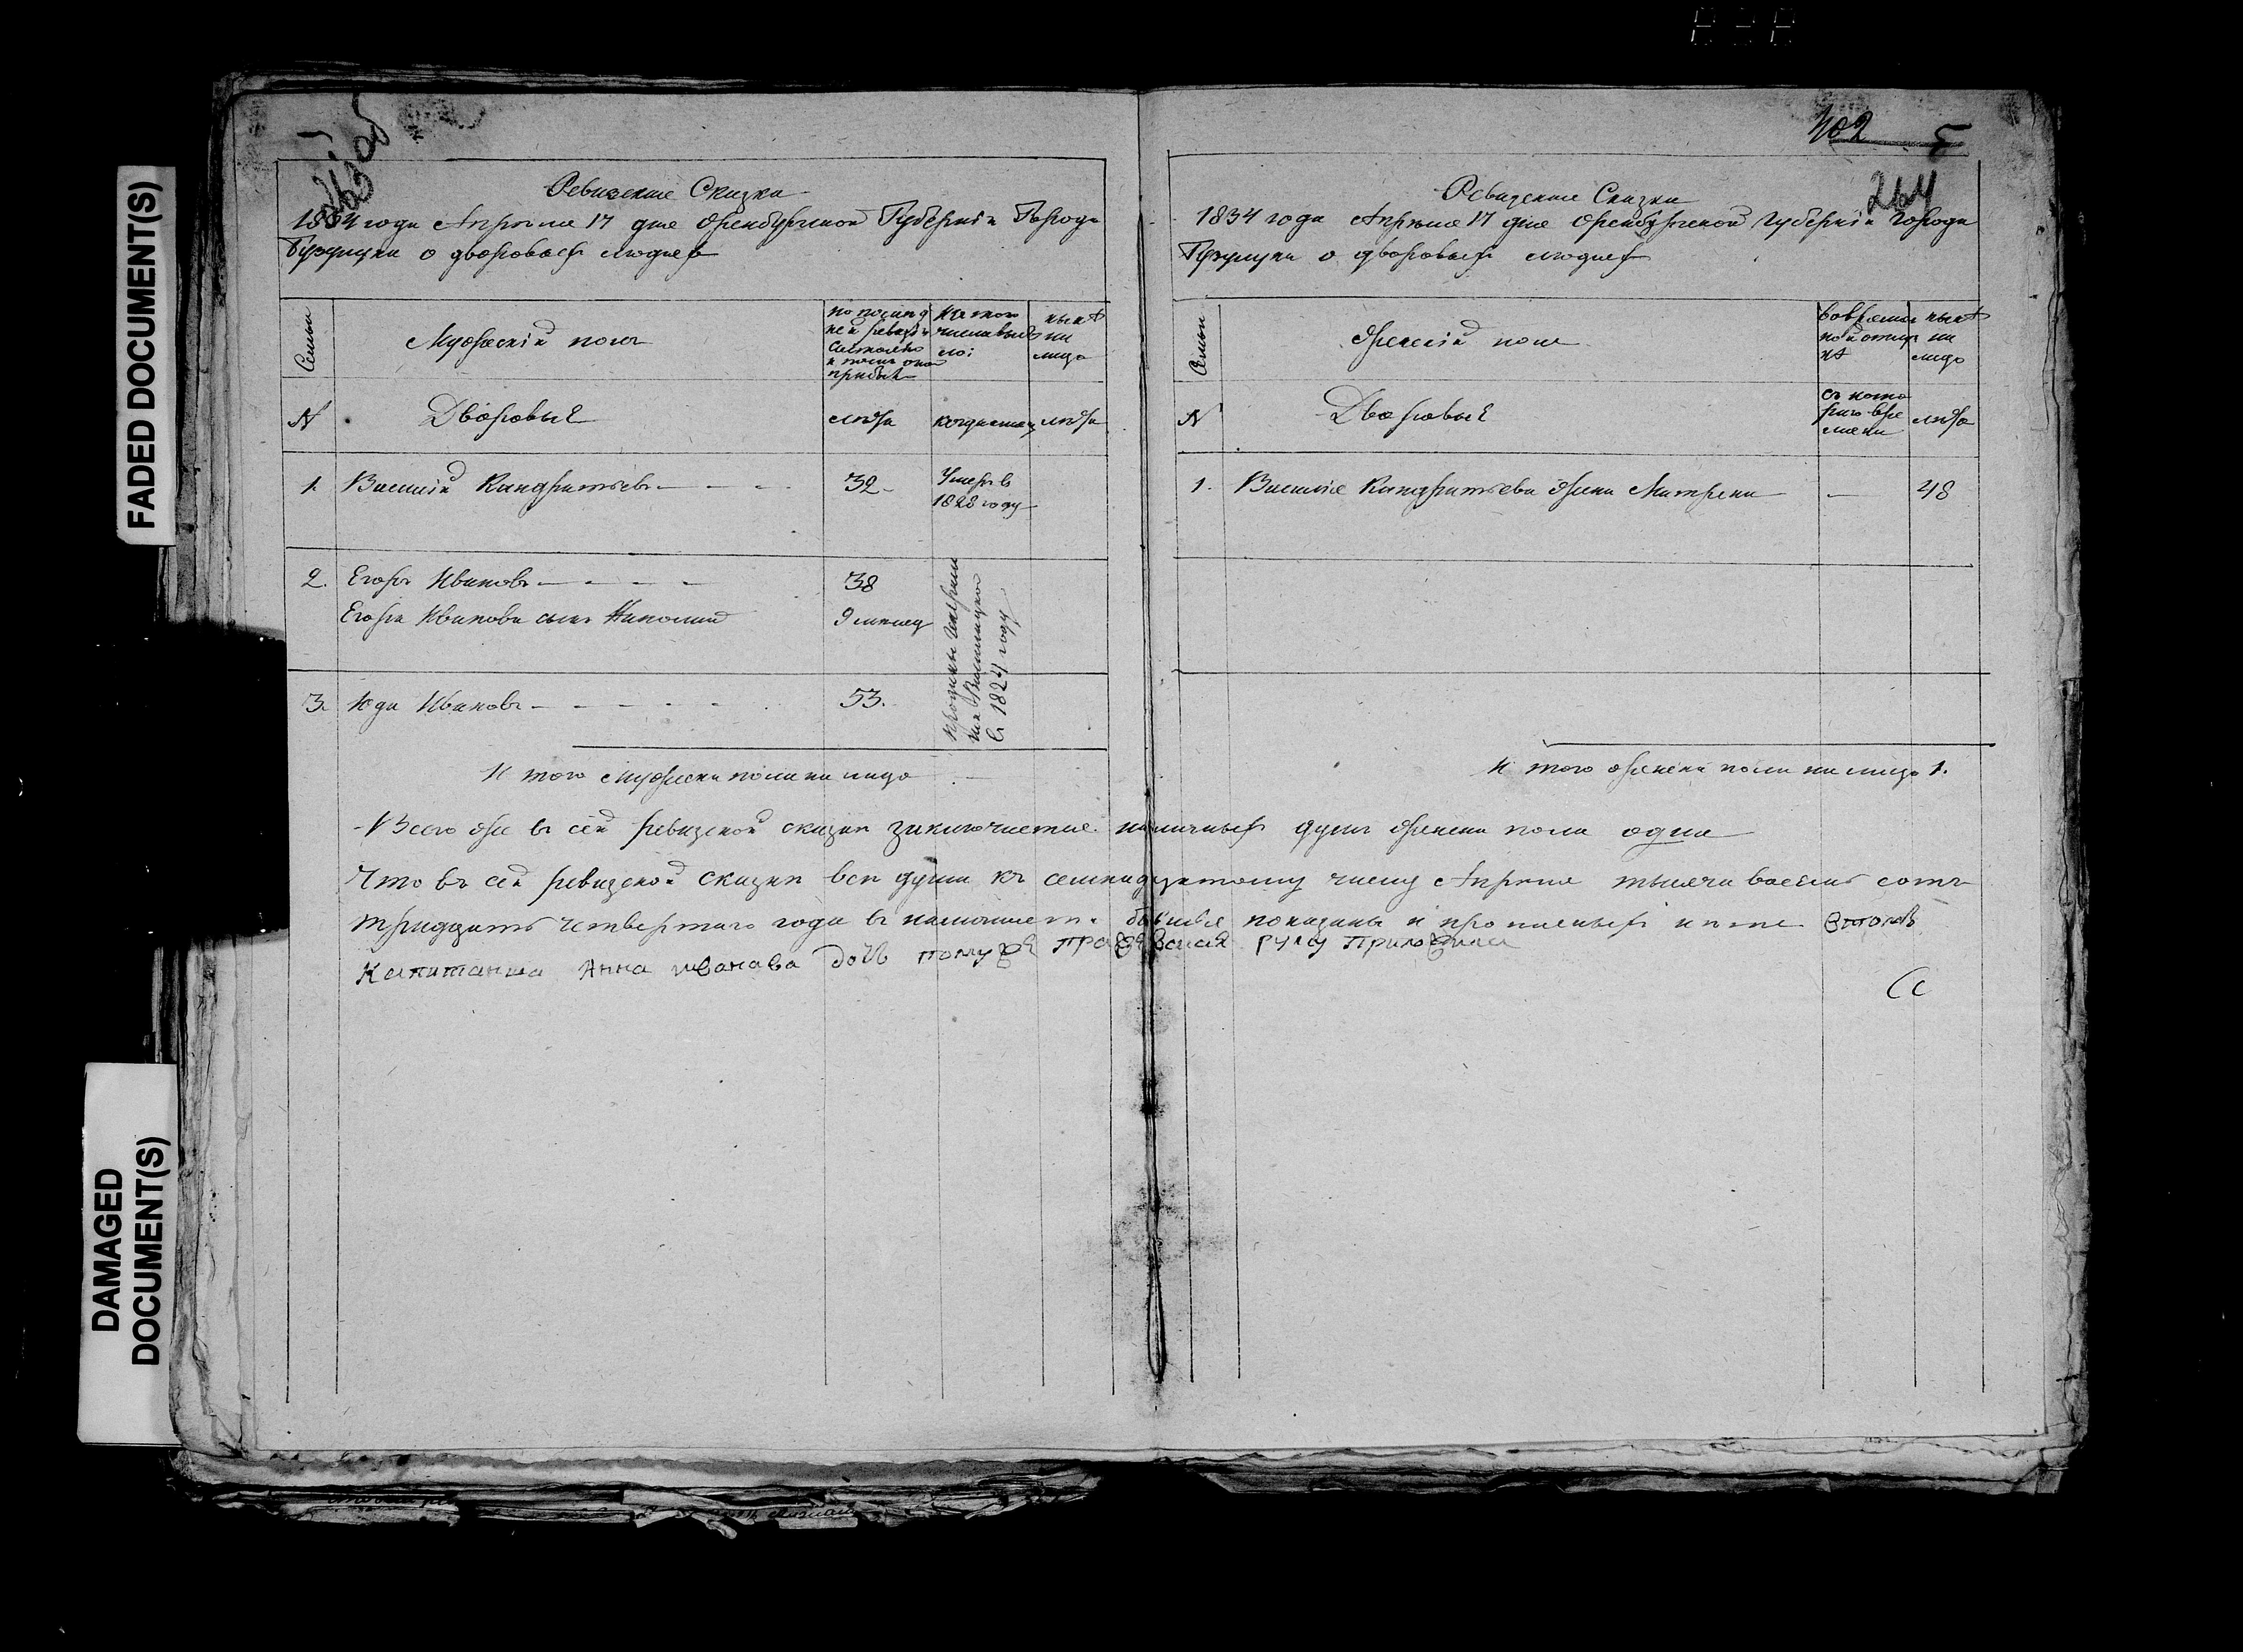 FADED DOCUMENT(S)
DAMAGED DOCUMENT(S)
263 об
Ревизские Сказки
1834 года Апреля 17 дня Оренбургской Губернiи Города
Бузулука о дворовых людях
Семьи
Мужеский пол
по послед
ней ревизiи
состояло
и после оной
прибыло
Из того
числа выбы
ло
ныне
на
лицо
№
Дворовые
лета
когда именно
лета
1. Василий Кандратьев
32
Умер в
1828 году
2. Егор Иванов
38
Егора Иванова сын Николай
9 месяц
3. Юда Иванов
53.
проданы
в 1824 году
И того мужеска пола на лицо
402
264
Ревизские Сказки
1834 года Апреля 17 дня Оренбургской Губернiи Города
Бузулука о дворовых людях
Семьи
Женский пол
во времен
ной отлуч
ке
ныне
на
лицо
№
Дворовые
с кото
раго вре
мени
лета
1. Василья Кандратьева жена Матрена
48
И того женска пола на лицо 1.
Всего же в сей ревизской сказке заключается наличных душ женска пола одна
Что въ сей ревизской сказке все души къ семнадцатому числу Апреля тысяча восемь сотъ
тридцать четвертаго года в наличности бывшiя показаны и прописных нет втомъ
Капитанша Анна иванава дочь руку Приложила